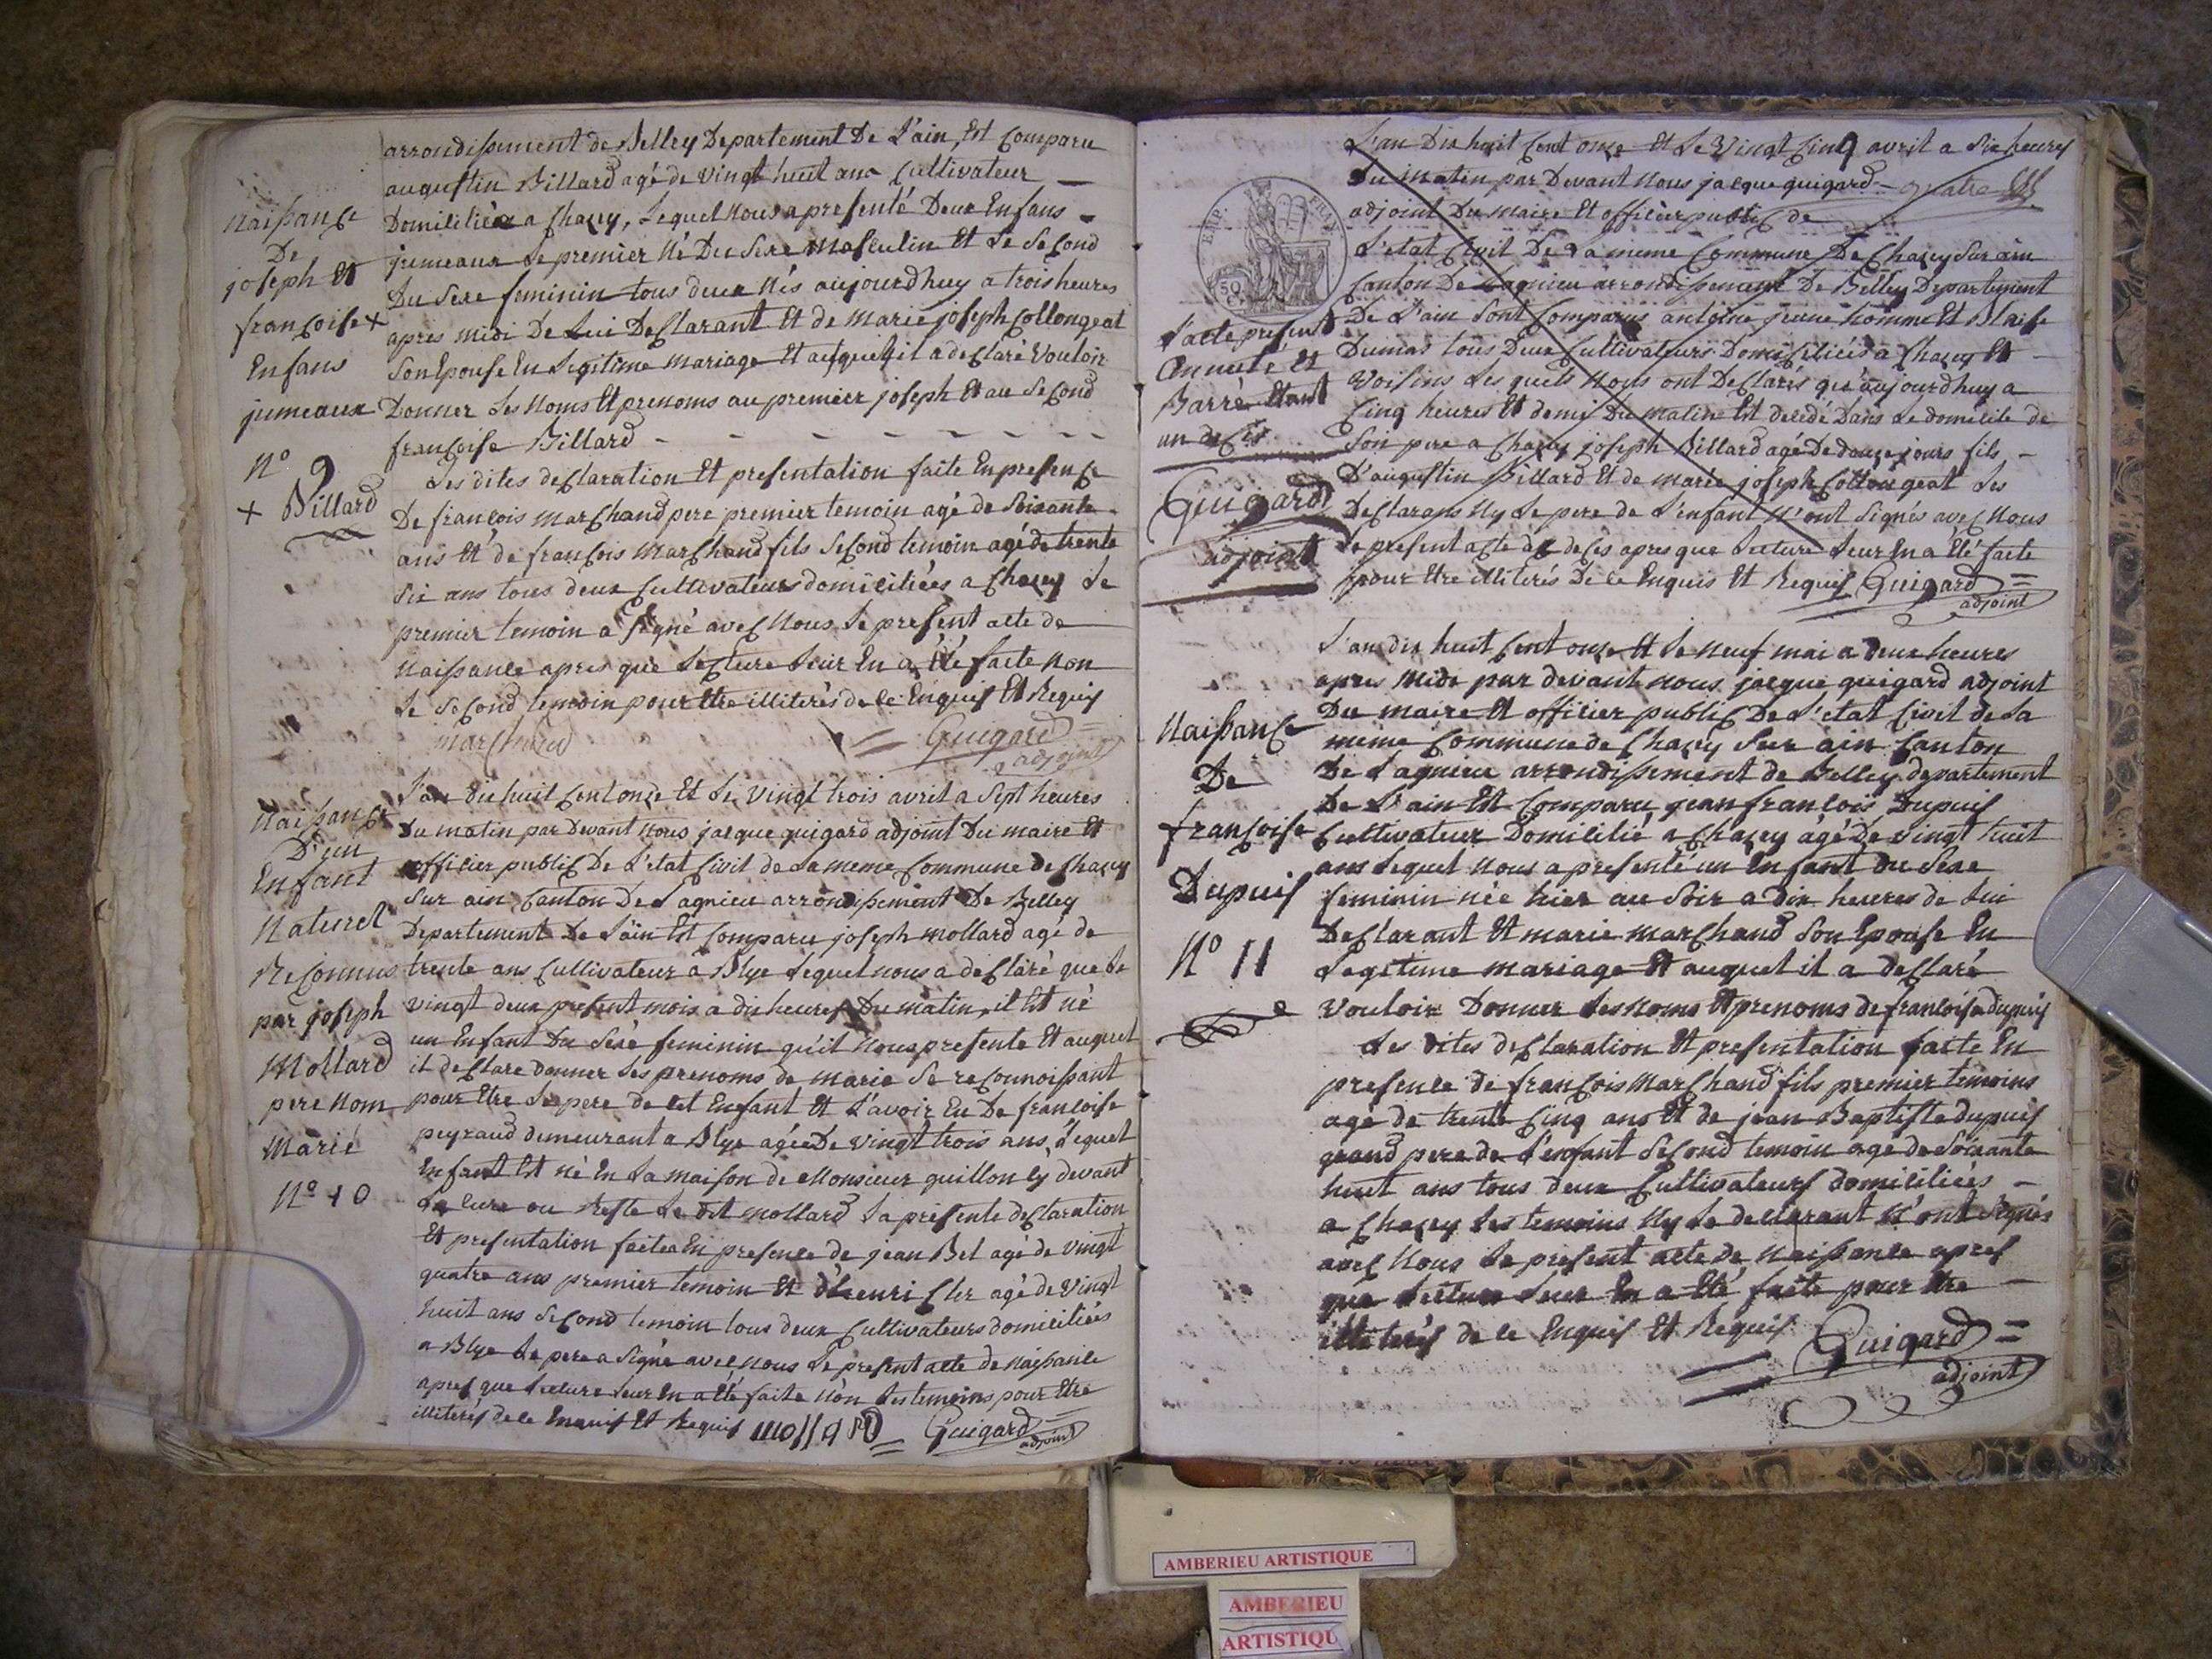 arrondissement de Belley Departement De L'ain, Est Comparu
augustin Billard agé de vingt huit ans Cultivateur
Domiciliée a Chazey, Lequel nous a presenté Deux Enfans
jumeaux Le premier Né Du Sexe Masculin Et Le Second
Du Sexe feminin tous deux Nés aujourdhuy a trois heures
apres midi De Lui Declarant Et de marie joseph Collongeat
Son Epouse En Legitime mariage Et auxquels il a declaré Vouloir
Donner Les Noms Et prenoms au premier joseph Et au Second
françoise Billard
Les dites declaration Et presentation faite En presence
De françois Marchand pere premier temoin agé de Soixante
ans Et de françois Marchand fils Second temoin agé de trente
Six ans tous deux Cultivateurs domiciliées a Chazey Le
premier temoin a Signé avec Nous Le present acte de
Naissance apres que Lecture Leur En a Eté faite Non
Le Second temoin pour Etre illiterés de ce Enquis Et Requis
Marchand Guigard
adjoint
Naissance
De
joseph Et
françoise +
Enfans
jumeaux
N° 9
+ Billard
L'an dix huit Cent onze Et Le Vingt trois avril a Sept heures
Du matin par Devant Nous jacque guigard adjoint Du maire Et
officier public De L'etat Civil de La meme Commune de Chazey
Sur ain Canton De Lagnieu arrondissement De Belley
Departement De L'ain Est Comparu joseph mollard agé de
trente ans Cultivateur a Blye Lequel nous a declaré que Le
vingt deux present mois a dix heures Du matin, il Est né
un Enfant Du Sexe feminin qu'il Nous presente Et auquel
il declare donner Les prenoms de marie Se reconnoissant
pour Etre Le pere de cet Enfant Et L'avoir Eu De françoise
peyraud demeurant a Blye agée De vingt trois ans, Lequel
Enfant Est né En La maison de Monsieur guillon cy devant
La cure ou Reste Le dit mollard La presente declaration
Et presentation faites En presence de jean Bel agé de vingt
quatre ans premier temoin Et d'henri Cler agé de Vingt
huit ans Second temoin tous deux Cultivateurs domiciliées
a Blye Le pere a Signé avec Nous Le present acte de Naissance
apres que Lecture Leur En a Eté faite Non Les temoins pour Etre
illiterés de ce Enquis Et Requis MOLLARD Guigard
adjoint
Naissance
D'un
Enfant
Naturel
Reconnus
par joseph
Mollard
pere Nom
Marié
N° 10
L'an Dix huit Cent onze Et Le Vingt Cinq avril a Six heures
Du Matin par Devant Nous jacque guigard
adjoint Du maire Et officier public de
L'etat Civil De La meme Commune De Chazey Sur ain
Canton De Lagnieu arrondissement De Belley Departement
De L'ain Sont Comparus antoine jeune homme Et Blaise
Dumas tous Deux Cultivateurs Domiciliées a Chazey Et
Voisins Les quels Nous ont Declarés qu'aujourdhuy a
Cinq heures Et demi Du matin Est decedé Dans Le domicile de
Son pere a Chazey joseph Billard agé De douze jours fils
D'augustin Billard Et de marie joseph Collongeat Les
Declarans Ny Le pere de L'enfant N'ont Signés avec Nous
Le present acte de deces apres que Lecture Leur En a Eté faite
pour Etre illiterés De ce Enquis Et Requis Guigard
adjoint
EMP. FRAN.
50
C
L'acte present
Annulé Et
Barré Etant
un decés
Guigard
adjoint
L'an dix huit Cent onze Et Le neuf mai a Deux heures
apres Midi par devant nous jacque guigard adjoint
Du maire Et officier public De L'etat Civil de La
meme Commune de Chazey Sur ain Canton
De Lagnieu arrondissement de Belley departement
De L'ain Est Comparu jean françois Dupuis
Cultivateur Domicilié a Chazey agé De vingt huit
ans Lequel Nous a presenté un Enfant du Sexe
feminin née hier au Soir a dix heures de Lui
Declarant Et marie Marchand Son Epouse En
Legitime mariage Et auquel il a declaré
Vouloir Donner Les Noms Et prenoms de francoise dupuis
Les dites declaration Et presentation faite En
presence de françois Marchand fils premier temoins
agé de trente Cinq ans Et de jean Baptiste dupuis
grand pere de L'enfant Second temoin agé de Soixante
huit ans tous deux Cultivateurs domiciliées
a Chazey Les temoins Ny Le declarant N'ont Signés
avec Nous Le present acte de Naissance apres
que Lecture Leur En a Eté faite pour Etre
illiterés de ce Enquis Et Requis Guigard
adjoint
Naissance
De
françoise
Dupuis
N° 11
AMBERIEU ARTISTIQUE
AMBERIEU
ARTISTIQU